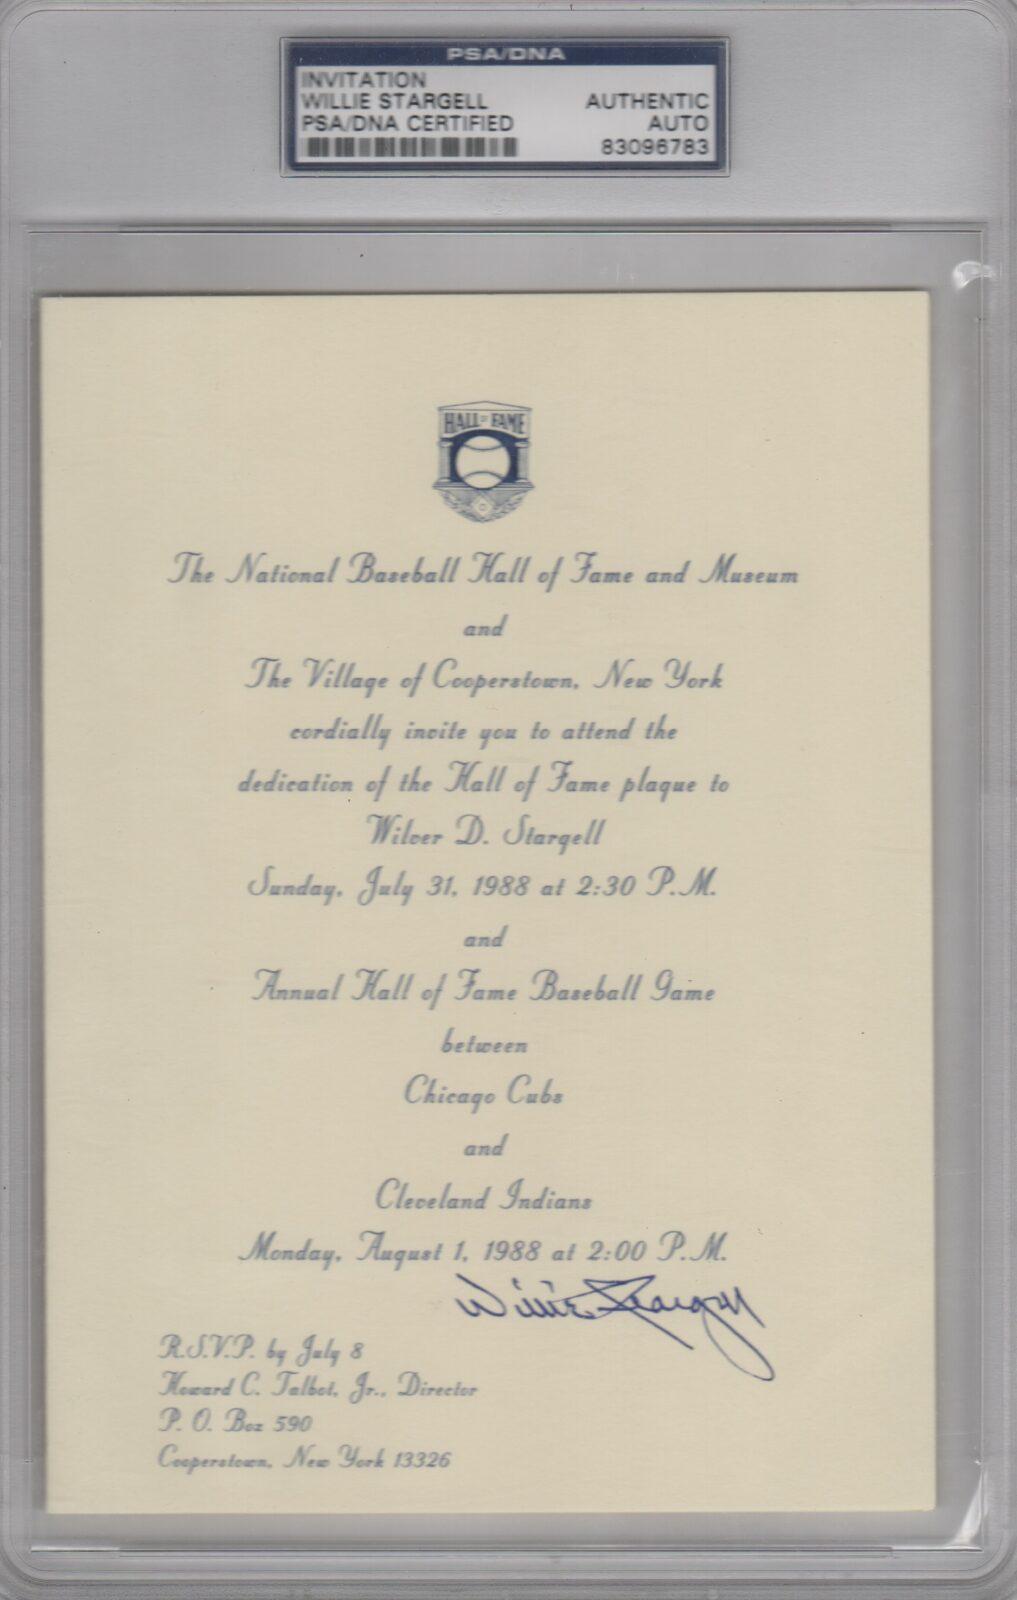 PSA/DNA
INVITATION
WILLIE STARGELL AUTHENTIC
PSA/DNA CERTIFIED AUTO
83096783
HALL OF FAME
The National Baseball Hall of Fame and Museum
and
The Village of Cooperstown, New York
cordially invite you to attend the
dedication of the Hall of Fame plaque to
Wilver D. Stargell
Sunday, July 31, 1988 at 2:30 P.M.
and
Annual Hall of Fame Baseball Game
between
Chicago Cubs
and
Cleveland Indians
Monday, August 1, 1988 at 2:00 P.M.
Willie Stargell
R.S.V.P. by July 8
Howard C. Talbot, Jr., Director
P. O. Box 590
Cooperstown, New York 13326